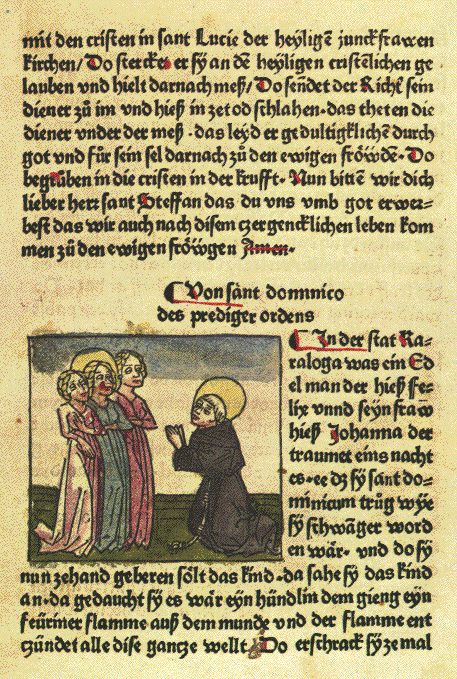 mit den cristen in sant Lucie der heyligē junckfrawen
kirchen/ Do sterckt er sy an dē heyligen cristēlichen ge
lauben vnd hielt darnach meß/ Do sendet der Richt̕ sein
diener zů im vnd hieß in zetod schlahen. das theten die
diener vnder der meß. das leyd er gedultigklichē durch
got vnd für sein sel darnach zů den ewigen fröwdē. Do
begrůben in die cristen in der krufft. Nun bittē wir dich
lieber herr sant Steffan das du vns vmb got erwer=
best das wir auch nach disem zergencklichen leben kom
men zů den ewigen fröwgen Amen.
Von sant dominico
des prediger ordens
In der stat Ka=
raloga was ein Ed
el man der hieß fe=
lix vnnd seyn fraw̄
hieß Johanna der
traumet eins nacht
es. ee dz sy sant do=
minicum trůg wye
sy schwāger word
en wär. vnd do sy
nun zehand geberen sölt das kind. da sahe sy das kind
an. da gedaucht sy es wär eyn hündlin dem gieng eyn
feüriner flamme auß dem munde vnd der flamme ent
zündet alle dise gantze wellt. Do erschrack sy ze mal